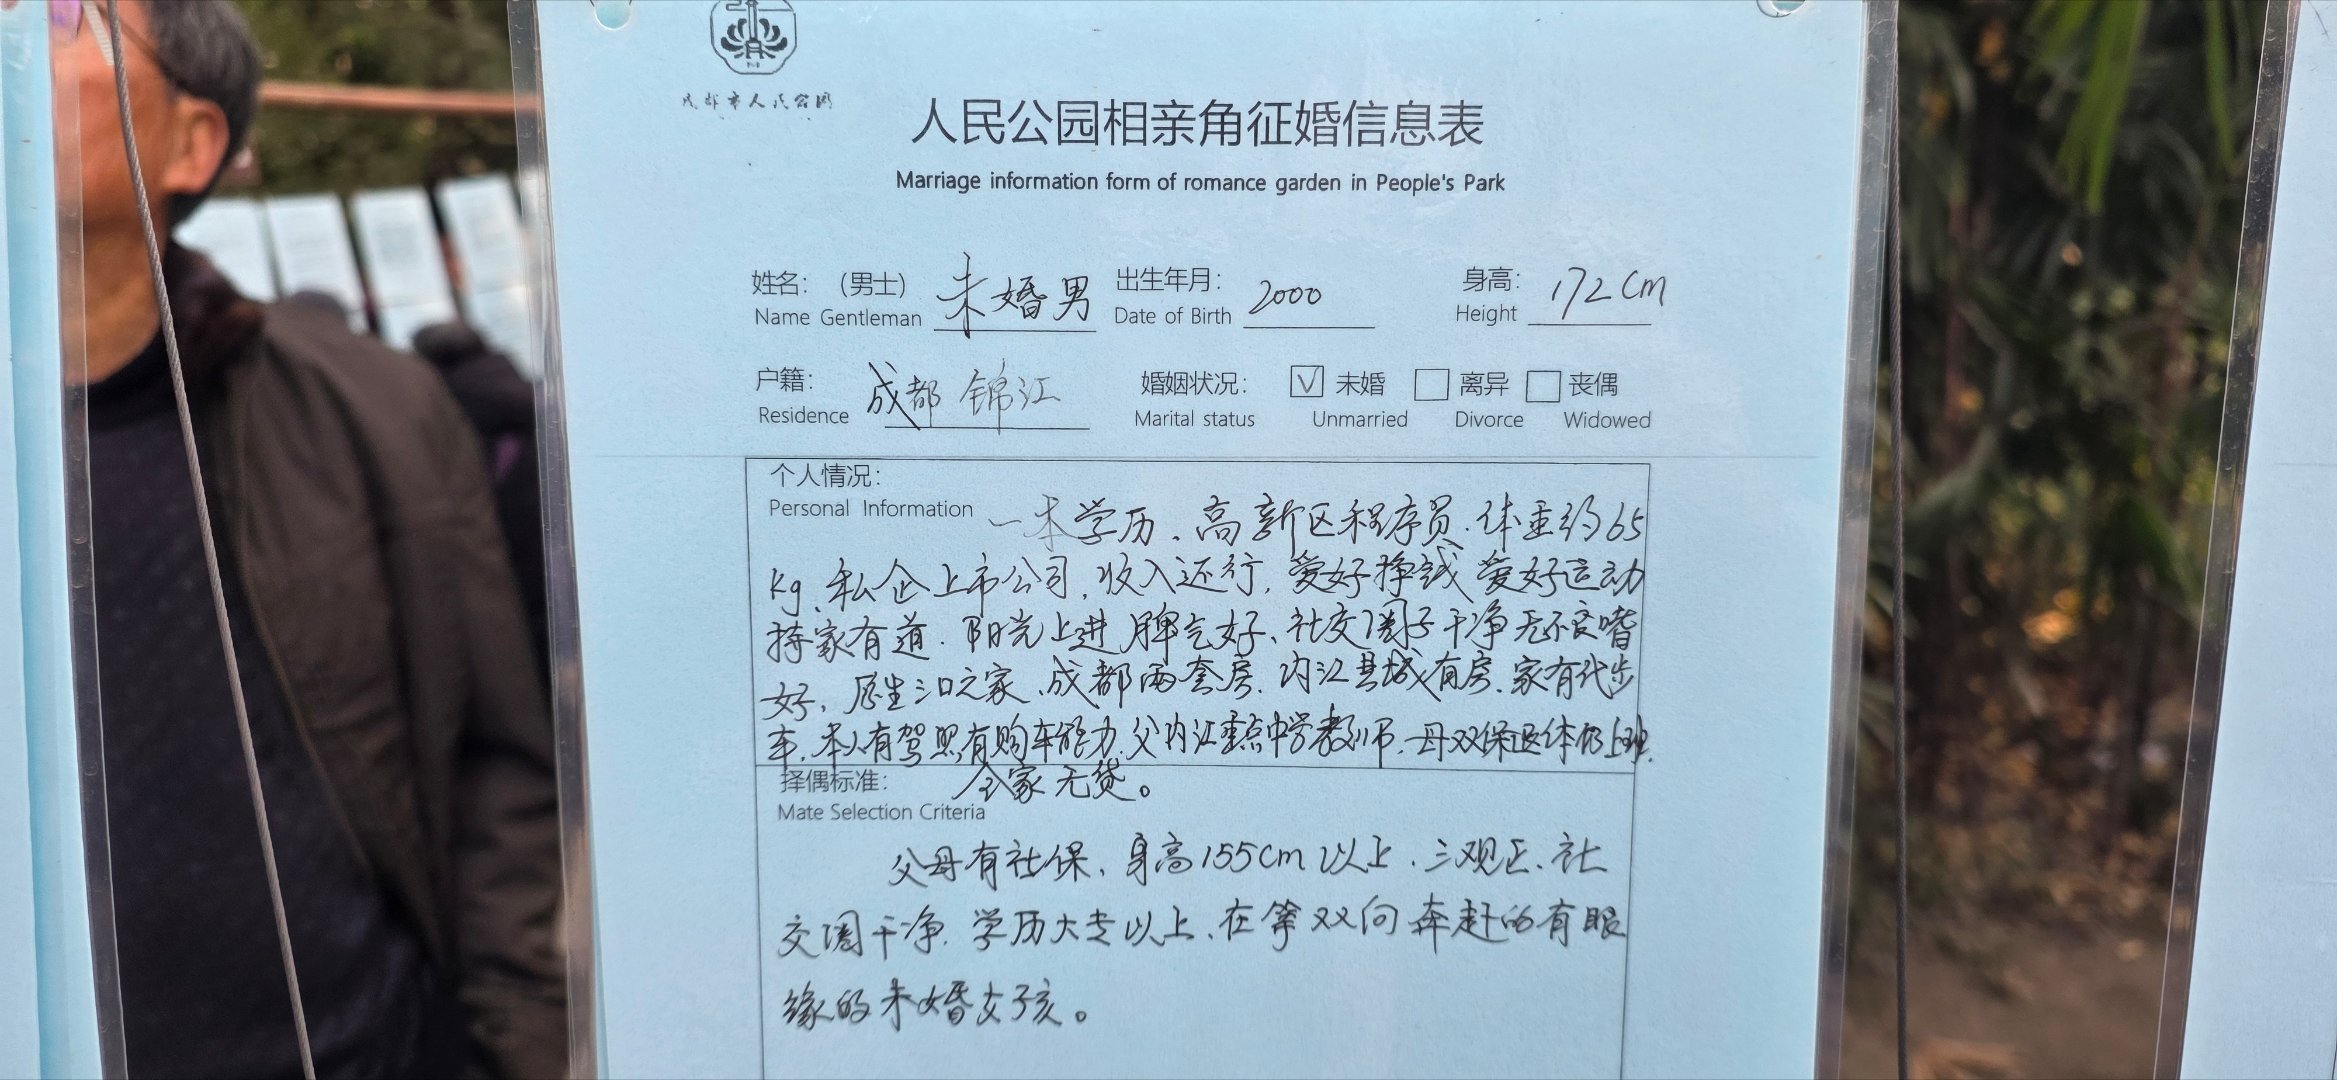 成都市人民公园
人民公园相亲角征婚信息表
Marriage information form of romance garden in People's Park
姓名：（男士） 未婚男 出生年月： 2000 身高： 172cm
Name Gentleman Date of Birth Height
户籍： 成都 锦江 婚姻状况： ☑ 未婚 □ 离异 □ 丧偶
Residence Marital status Unmarried Divorce Widowed
个人情况：
Personal Information
一本学历、高新区程序员、体重约65
kg、私企上市公司，收入还行，爱好挣钱 爱好运动
持家有道、阳光上进 脾气好、社交圈子干净 无不良嗜
好，原生三口之家、成都两套房、内江县城有房、家有代步
车，本人有驾照，有购车能力，父内江重点中学教师，母双保退休仍上班，
全家无贷。
择偶标准：
Mate Selection Criteria
父母有社保、身高155cm以上、三观正、社
交圈干净、学历大专以上、在等双向奔赴的有眼
缘的未婚女孩。